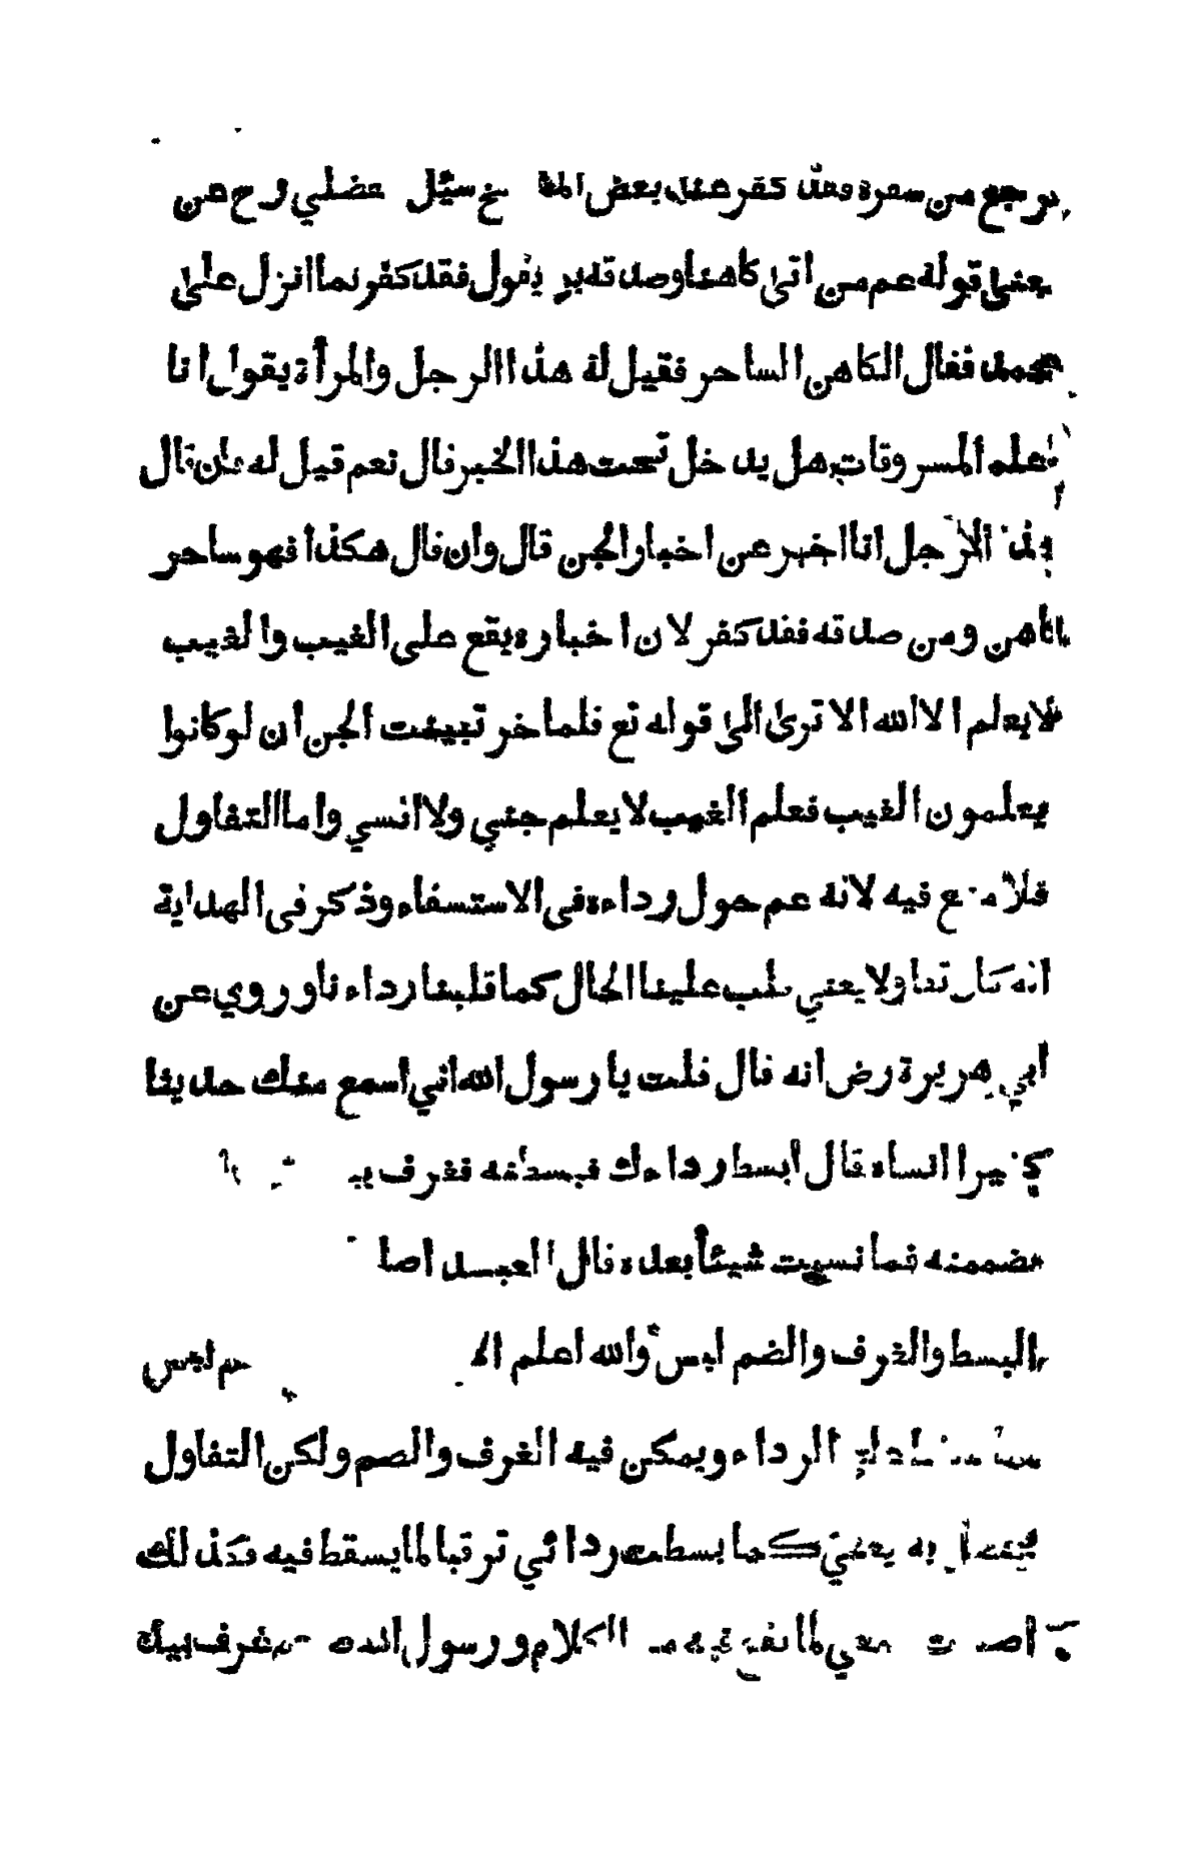 ورجع من سفره فقد كفر عند بعض المشايخ سئل فضلي رح عن
معنى قوله عم من اتى كاهنا وصدقه بما يقول فقد كفر بما انزل على
محمد فقال الكاهن الساحر فقيل له هذا الرجل والمرأة يقول انا
اعلم المسروقات هل يدخل تحت هذا الخبر قال نعم قيل له فان قال
هذا الرجل انا اخبر عن اخبار الجن قال وان قال هكذا فهو ساحر
كاهن ومن صدقه فقد كفر لان اخباره يقع على الغيب والغيب
لا يعلم الا الله الا ترى الى قوله تع فلما خر تبينت الجن ان لو كانوا
يعلمون الغيب فعلم الغيب لا يعلم جني ولا انسي واما التفاول
فلا منع فيه لانه عم حول رداءه في الاستسقاء وذكر في الهداية
انه كان تفاولا يعني قلب علينا الحال كما قلبنا رداءنا وروي عن
ابي هريرة رض انه قال قلت يا رسول الله اني اسمع منك حديثا
كثيرا انساه قال ابسط رداءك فبسطته فغرف
فضممته فما نسيت شيئا بعده قال العبد
البسط والغرف والضم ليس والله اعلم
الرداء ويمكن فيه الغرف والضم ولكن التفاول
به يعني كما بسطت ردائي ترقبا لما يسقط فيه فكذلك
لما الكلام ورسول الله غرف بيده